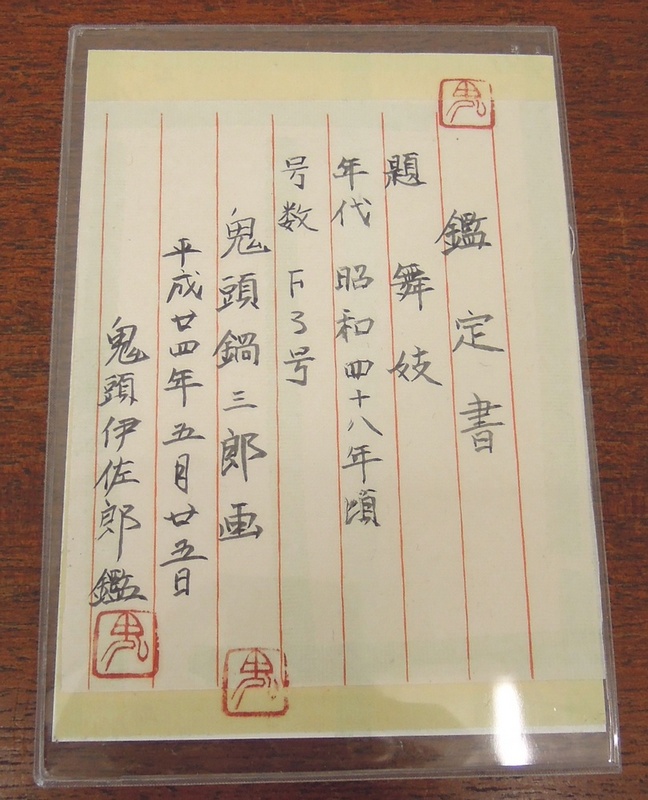 鑑定書
題 舞妓
年代 昭和四十八年頃
号数 F3号
鬼頭鍋三郎画
平成廿四年五月廿五日
鬼頭伊佐郎鑑